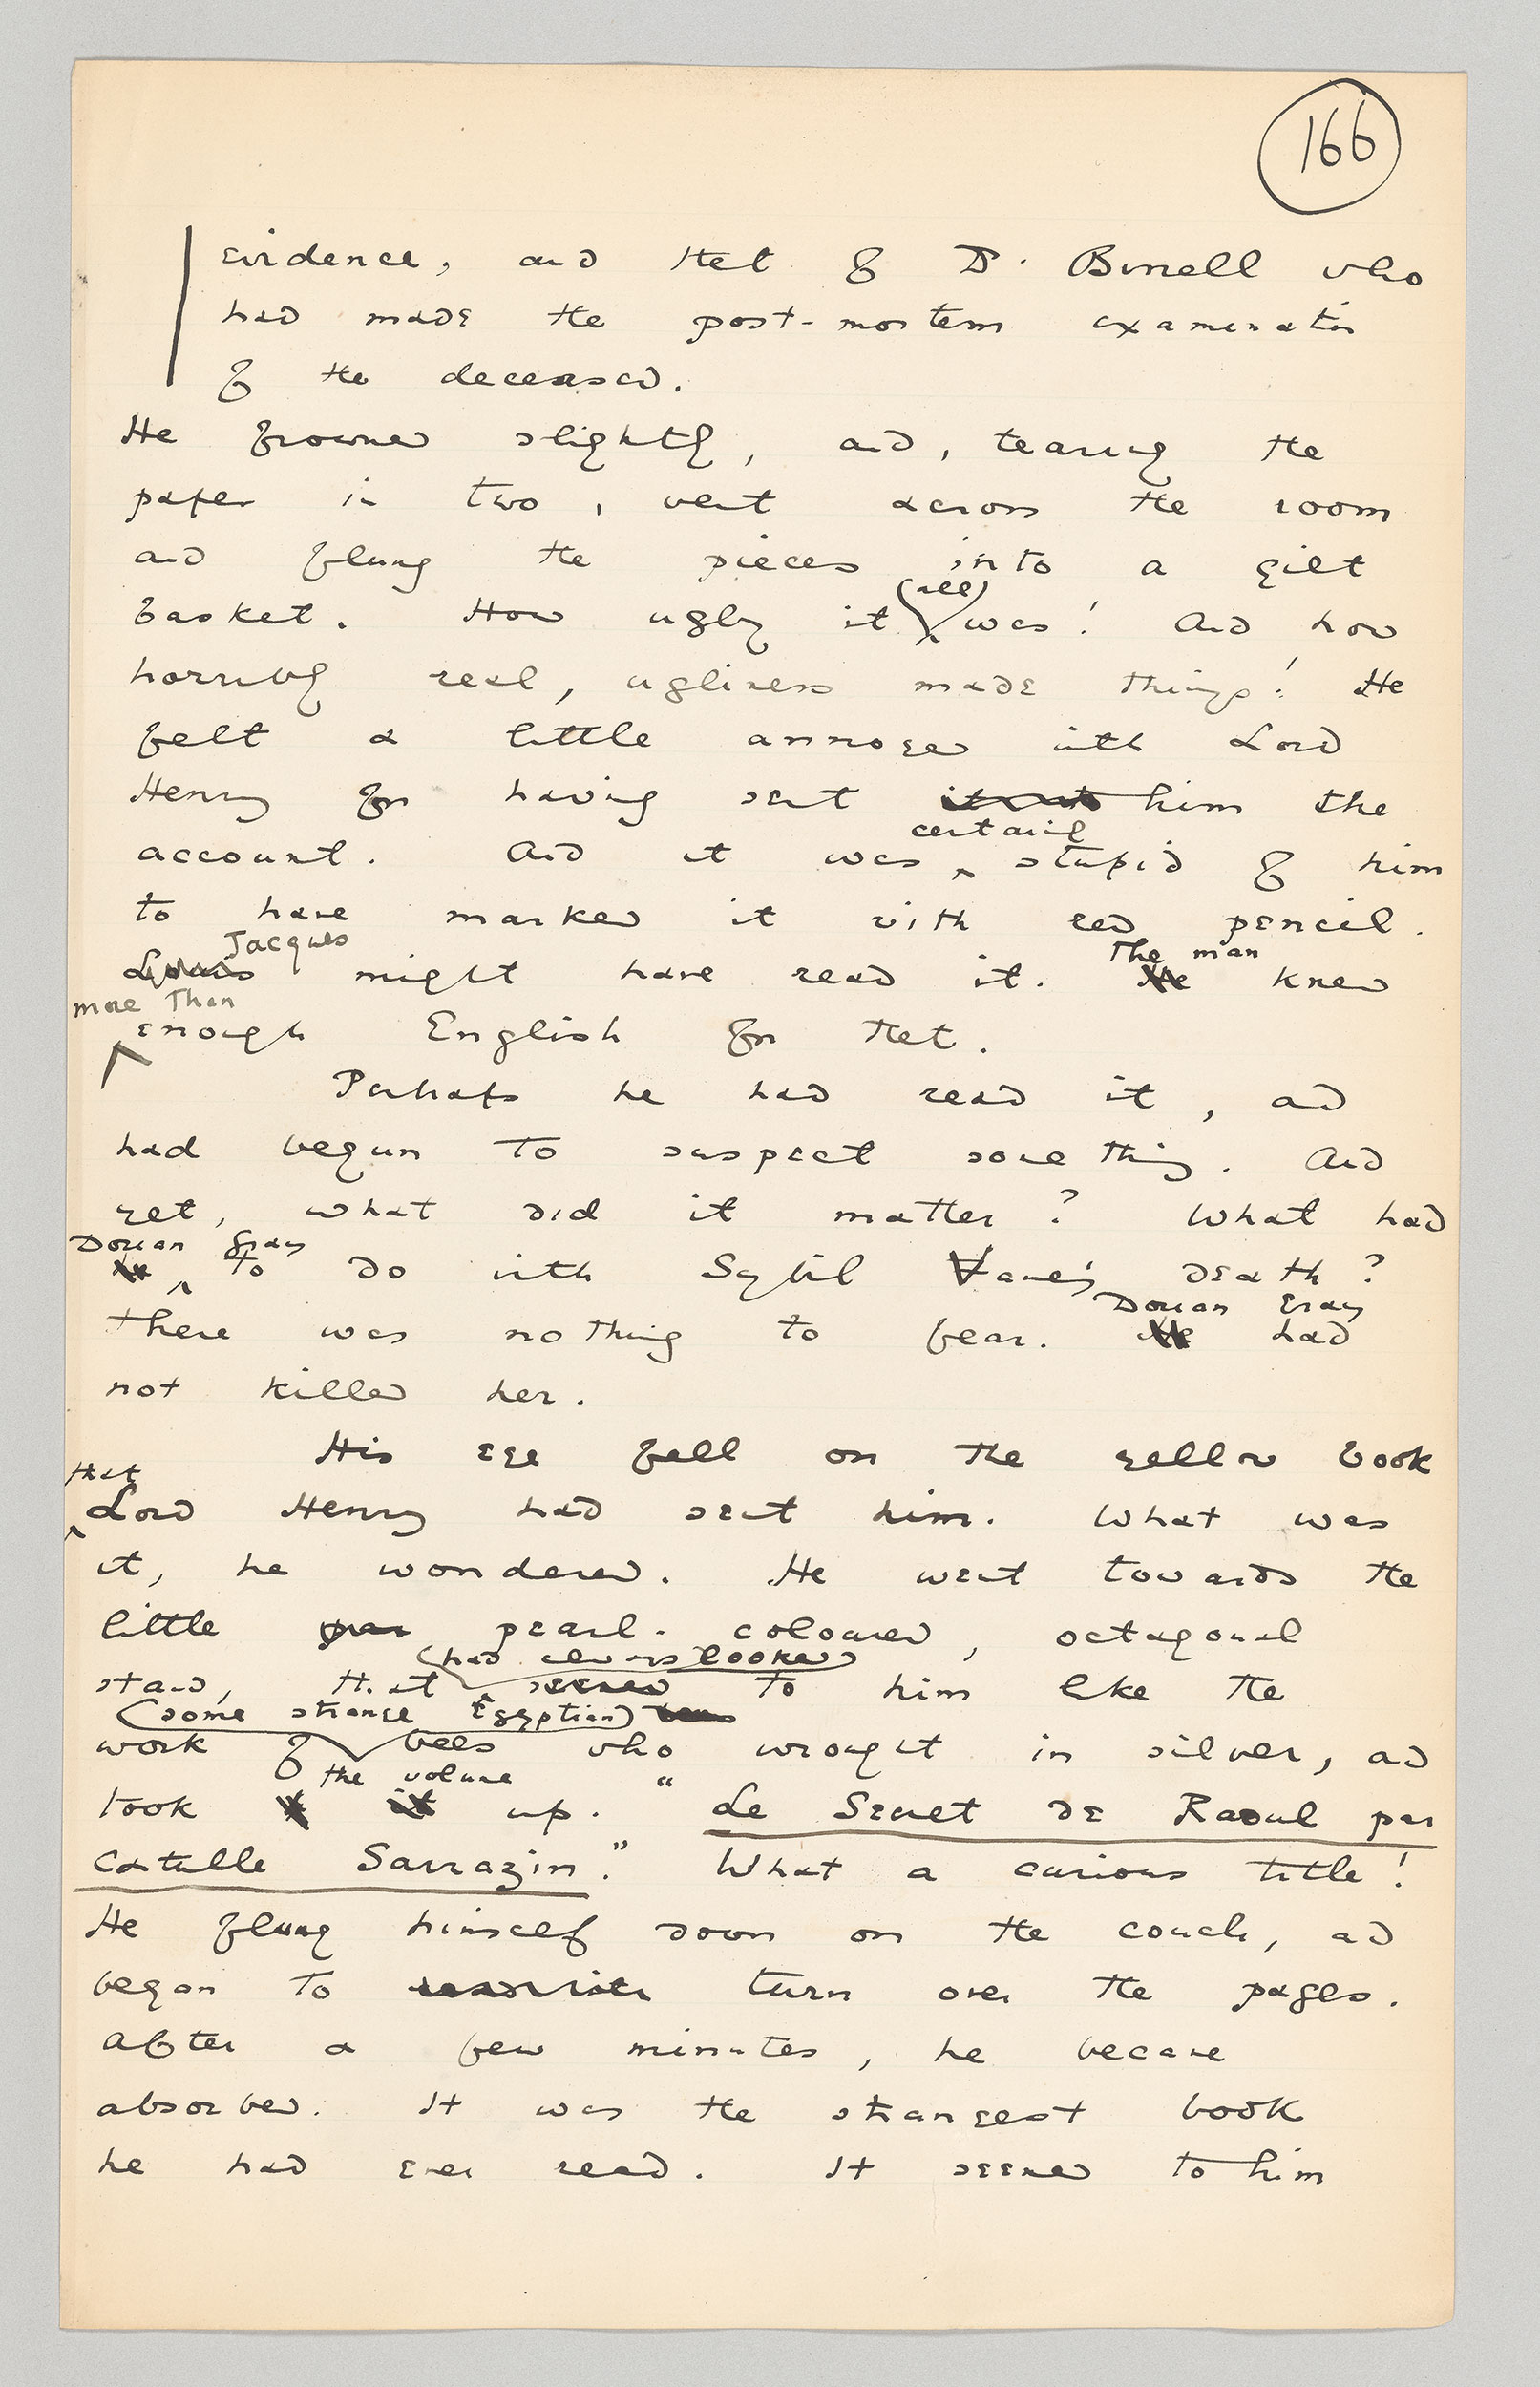 166
evidence, and that of Dr. Birrell who
had made the post-mortem examination
of the deceased.
He frowned slightly, and, tearing the
paper in two, went across the room
and flung the pieces into a gilt
(all)
basket. How ugly it was! And how
horribly real, ugliness made things! He
felt a little annoyed with Lord
Henry for having sent him the
certainly
account. And it was stupid of him
to have marked it with red pencil.
Jacques
Louis might have read it. He knew
The man
more than
enough English for that.
Perhaps he had read it, and
had begun to suspect something. And
yet, what did it matter? What had
Dorian Gray
to do with Sybil Vane's death?
Dorian Gray
There was nothing to fear. He had
not killed her.
His eye fell on the yellow book
that
Lord Henry had sent him. What was
it, he wondered. He went towards the
little pearl-coloured, octagonal
(had always looked)
stand, that seemed to him like the
(some strange Egyptian)
work of bees who wrought in silver, and
the volume
took it up. "Le Secret de Raoul par
Catulle Sarrazin." What a curious title!
He flung himself down on the couch, and
began to turn over the pages.
After a few minutes, he became
absorbed. It was the strangest book
he had ever read. It seemed to him